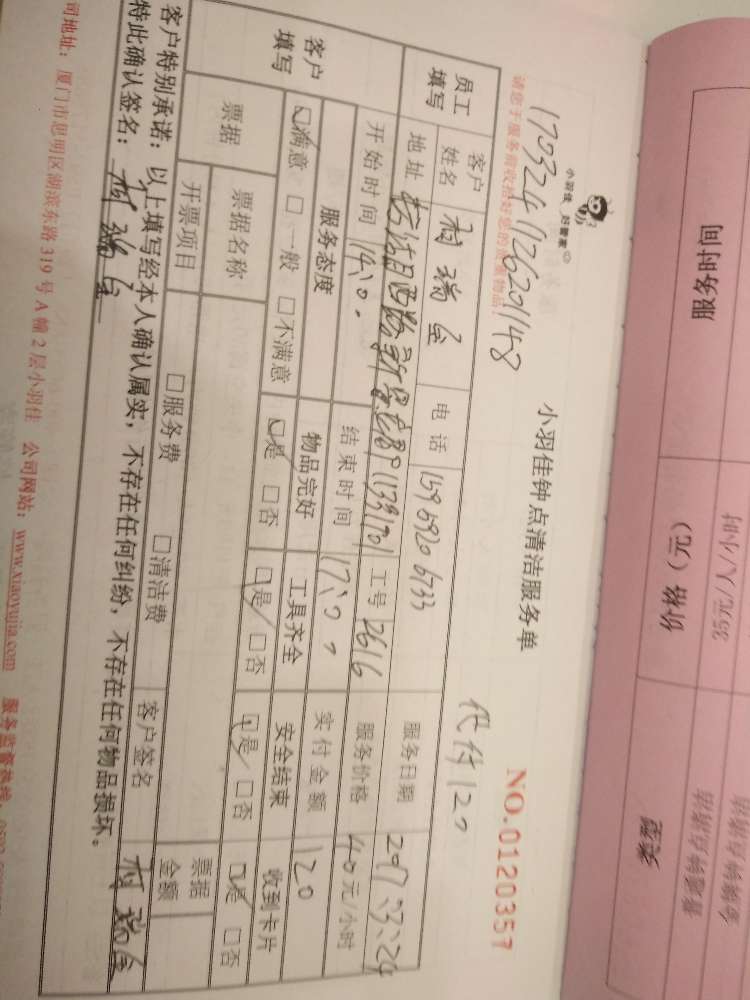 小羽佳 好管家
小羽佳钟点清洁服务单
NO.0120357
请您于服务前收拾好您的贵重物品!
代付120
员工填写
客户姓名
电话 159 5920 6733
服务日期 2017.3.24
地址
工号 2616
服务价格 40元/小时
开始时间 14:0.
结束时间 17:0.
实付金额 120
客户填写
服务态度 物品完好 工具齐全 安全结束 收到卡片
☑满意 □一般 □不满意 ☑是 □否 ☑是 □否 ☑是 □否 ☑是 □否
票据
票据名称
票据金额
开票项目 □服务费 □清洁费 客户签名
客户特别承诺:以上填写经本人确认属实,不存在任何纠纷,不存在任何物品损坏。
特此确认签名:
司地址:厦门市思明区湖滨东路319号A幢2层小羽佳 公司网站:www.xiaoyujia.com 服务监督热线:
服务时间
价格(元) 35元/人/小时
类型 普通钟点清洁